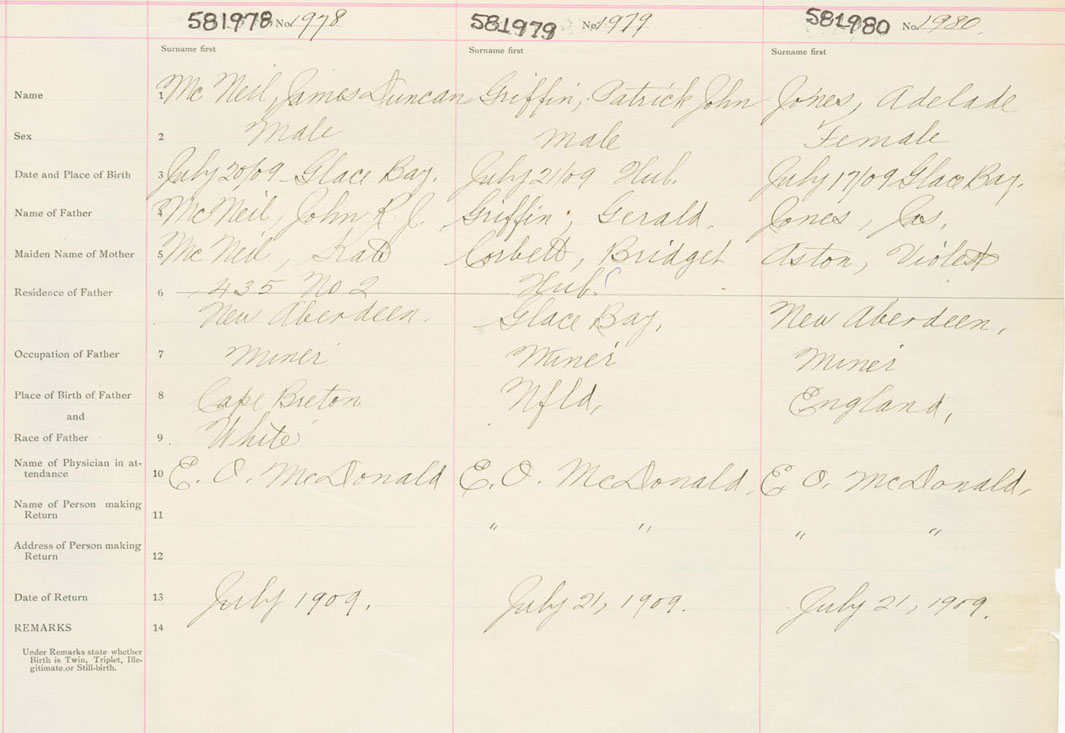 581978 No. 1978 581979 No. 1979 581980 No. 1980.
Surname first Surname first Surname first
Name 1 McNeil, James Duncan Griffin, Patrick John Jones, Adelade
Sex 2 Male Male Female
Date and Place of Birth 3 July 20/09 Glace Bay. July 21/09 Hub. July 17/09 Glace Bay.
Name of Father 4 McNeil, John R. J. Griffin, Gerald. Jones, Jas.
Maiden Name of Mother 5 McNeil, Corbett, Bridget Aston, Violet
Residence of Father 6 435 No 2 Hub.
New Aberdeen. Glace Bay, New Aberdeen,
Occupation of Father 7 Miner Miner Miner
Place of Birth of Father 8 Cape Breton Nfld, England,
and
Race of Father 9 White
Name of Physician in at-
tendance 10 E. O. McDonald E. O. McDonald, E. O. McDonald,
Name of Person making
Return 11 " " " "
Address of Person making
Return 12
Date of Return 13 July 1909. July 21, 1909. July 21, 1909.
REMARKS 14
Under Remarks state whether
Birth is Twin, Triplet, Ille-
gitimate or Still-birth.